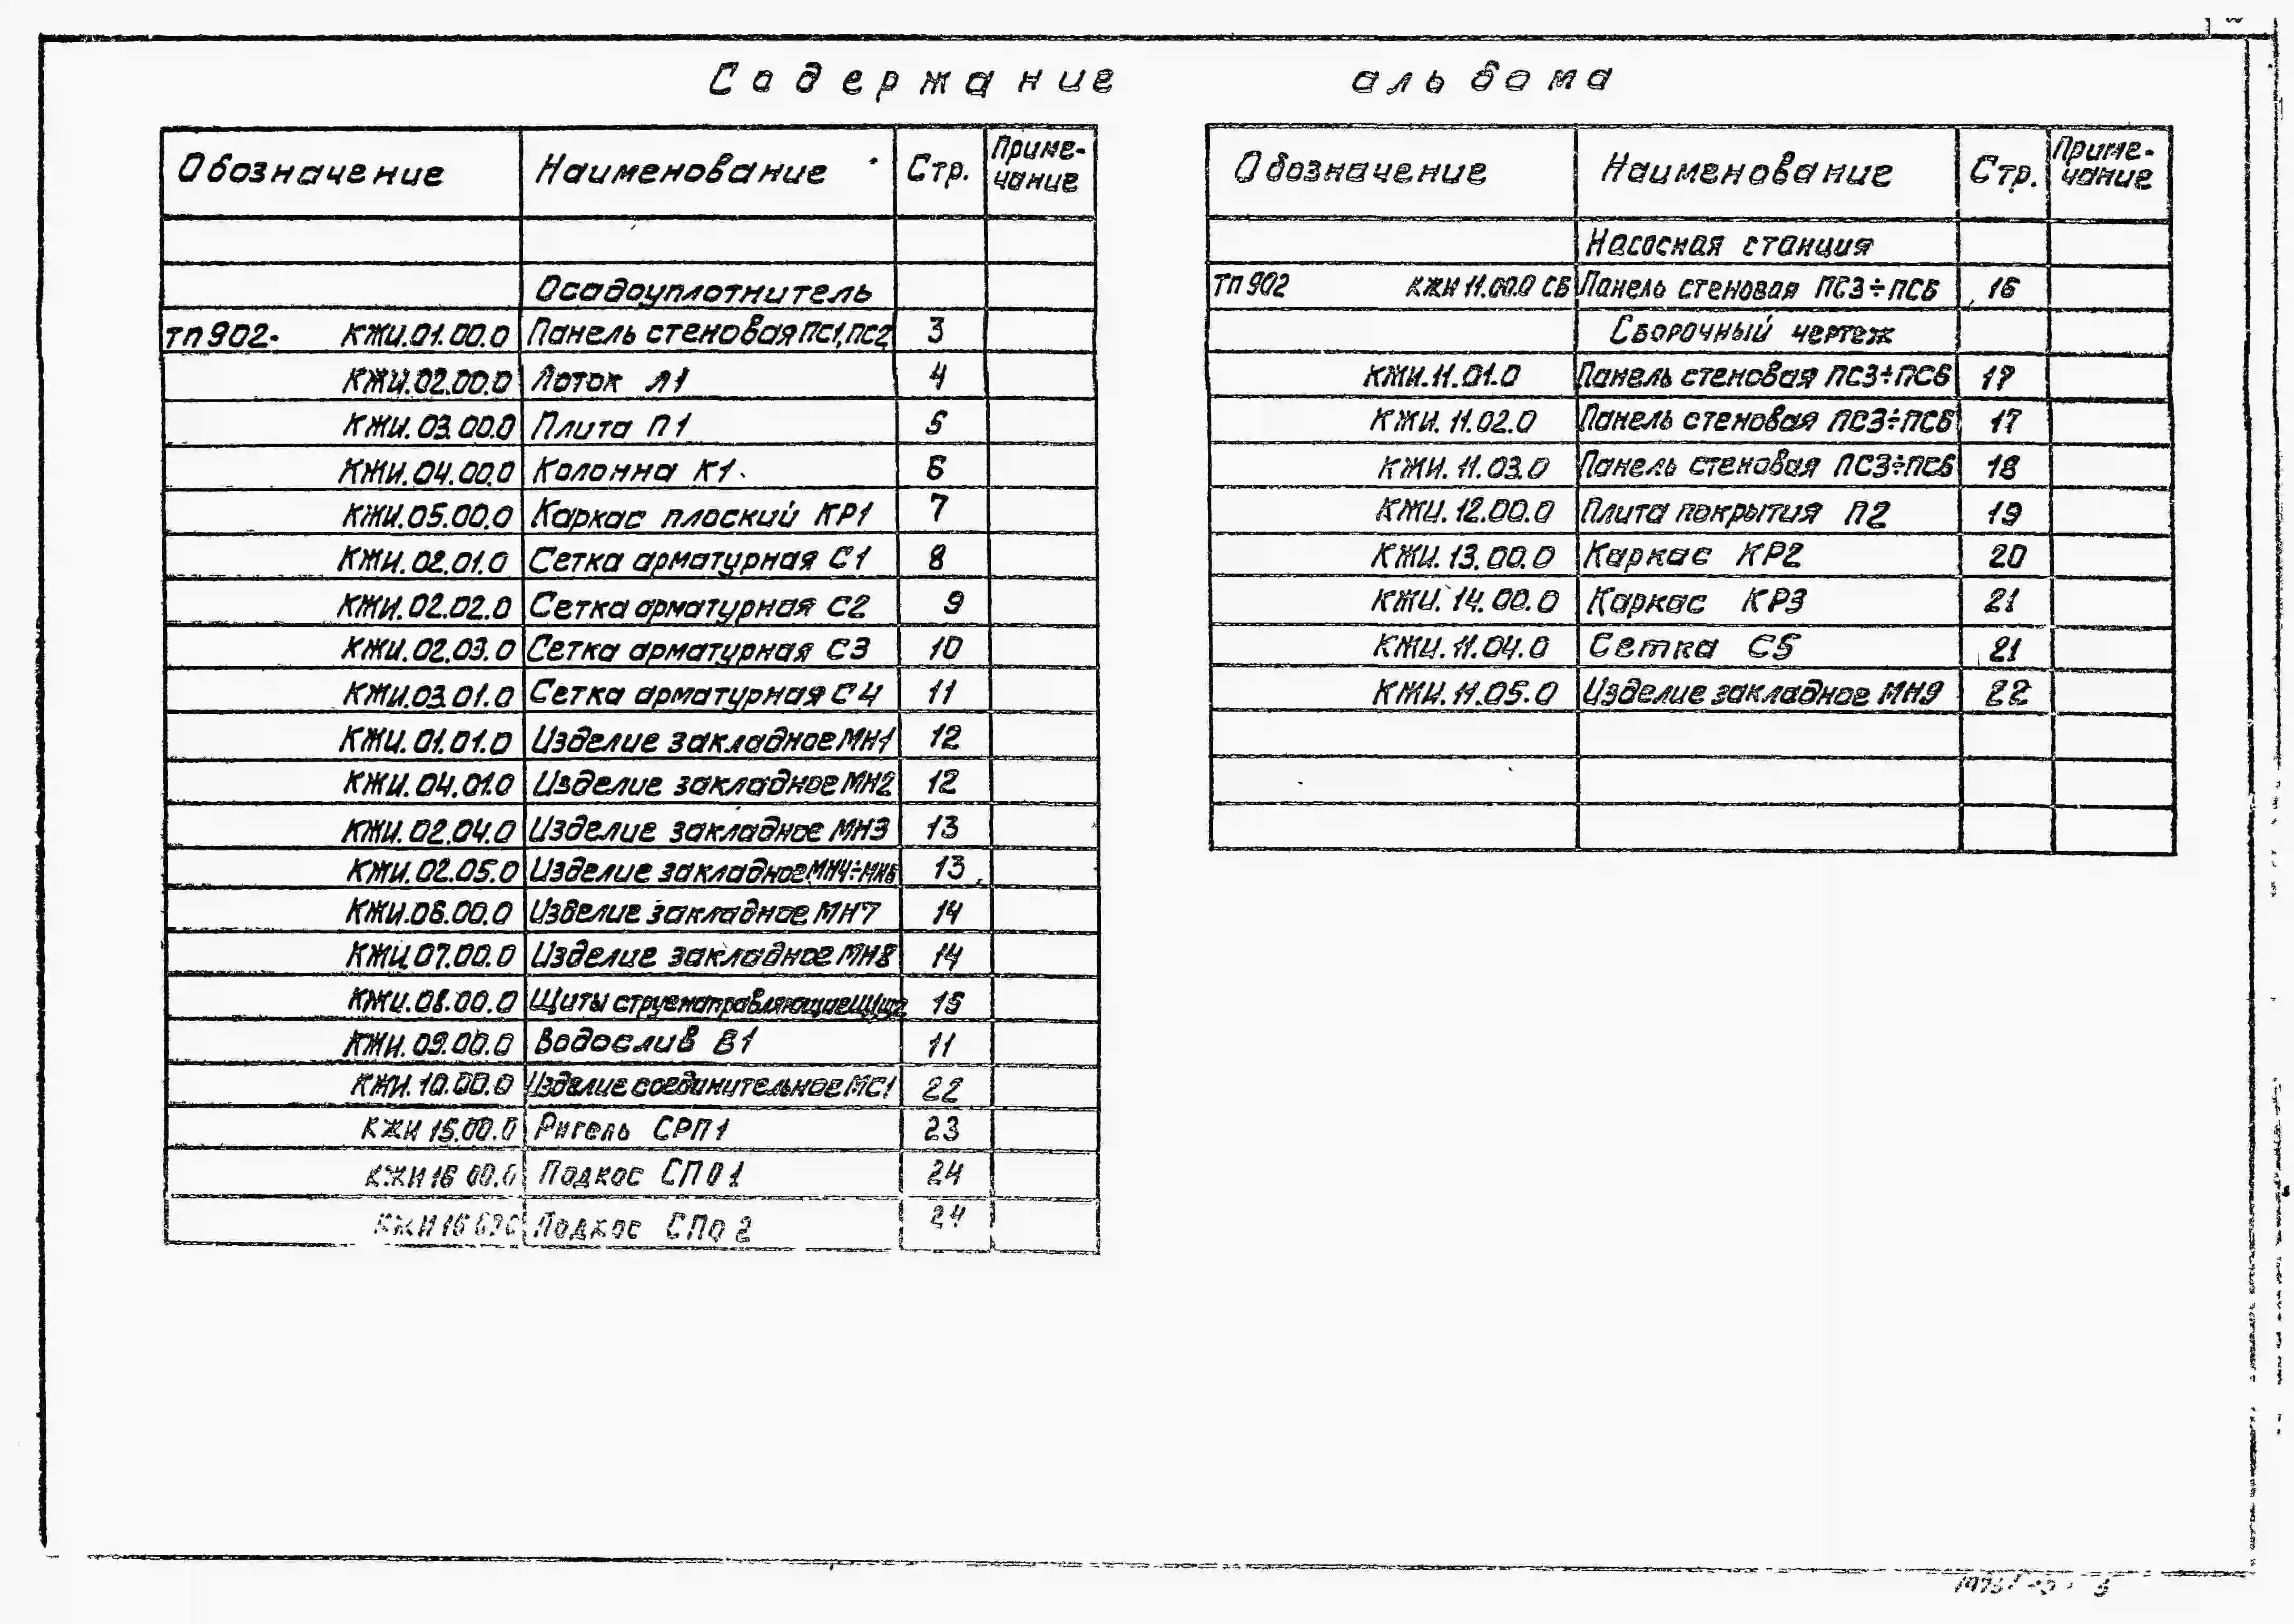 Содержание альбома
Обозначение Наименование Стр. Примечание
Осадоуплотнитель
ТП902- КЖИ.01.00.0 Панель стеновая ПС1, ПС2 3
КЖИ.02.00.0 Лоток Л1 4
КЖИ.03.00.0 Плита П1 5
КЖИ.04.00.0 Колонна К1 6
КЖИ.05.00.0 Каркас плоский КР1 7
КЖИ.02.01.0 Сетка арматурная С1 8
КЖИ.02.02.0 Сетка арматурная С2 9
КЖИ.02.03.0 Сетка арматурная С3 10
КЖИ.03.01.0 Сетка арматурная С4 11
КЖИ.01.01.0 Изделие закладное МН1 12
КЖИ.04.01.0 Изделие закладное МН2 12
КЖИ.02.04.0 Изделие закладное МН3 13
КЖИ.02.05.0 Изделие закладное МН4÷МН6 13
КЖИ.06.00.0 Изделие закладное МН7 14
КЖИ.07.00.0 Изделие закладное МН8 14
КЖИ.08.00.0 Щиты струенаправляющие Щ1,Щ2 15
КЖИ.09.00.0 Водослив В1 11
КЖИ.10.00.0 Изделие соединительное МС1 22
КЖИ 15.00.0 Ригель СРП1 23
КЖИ 16 00.0 Подкос СП01 24
КЖИ 16 Подкос СПО2 24
Обозначение Наименование Стр. Примечание
Насосная станция
ТП902 КЖИ 11.00.0 СБ Панель стеновая ПС3÷ПС6 16
Сборочный чертеж
КЖИ.11.01.0 Панель стеновая ПС3÷ПС6 17
КЖИ.11.02.0 Панель стеновая ПС3÷ПС6 17
КЖИ.11.03.0 Панель стеновая ПС3÷ПС6 18
КЖИ.12.00.0 Плита покрытия П2 19
КЖИ.13.00.0 Каркас КР2 20
КЖИ.14.00.0 Каркас КР3 21
КЖИ.11.04.0 Сетка С5 21
КЖИ.11.05.0 Изделие закладное МН9 22